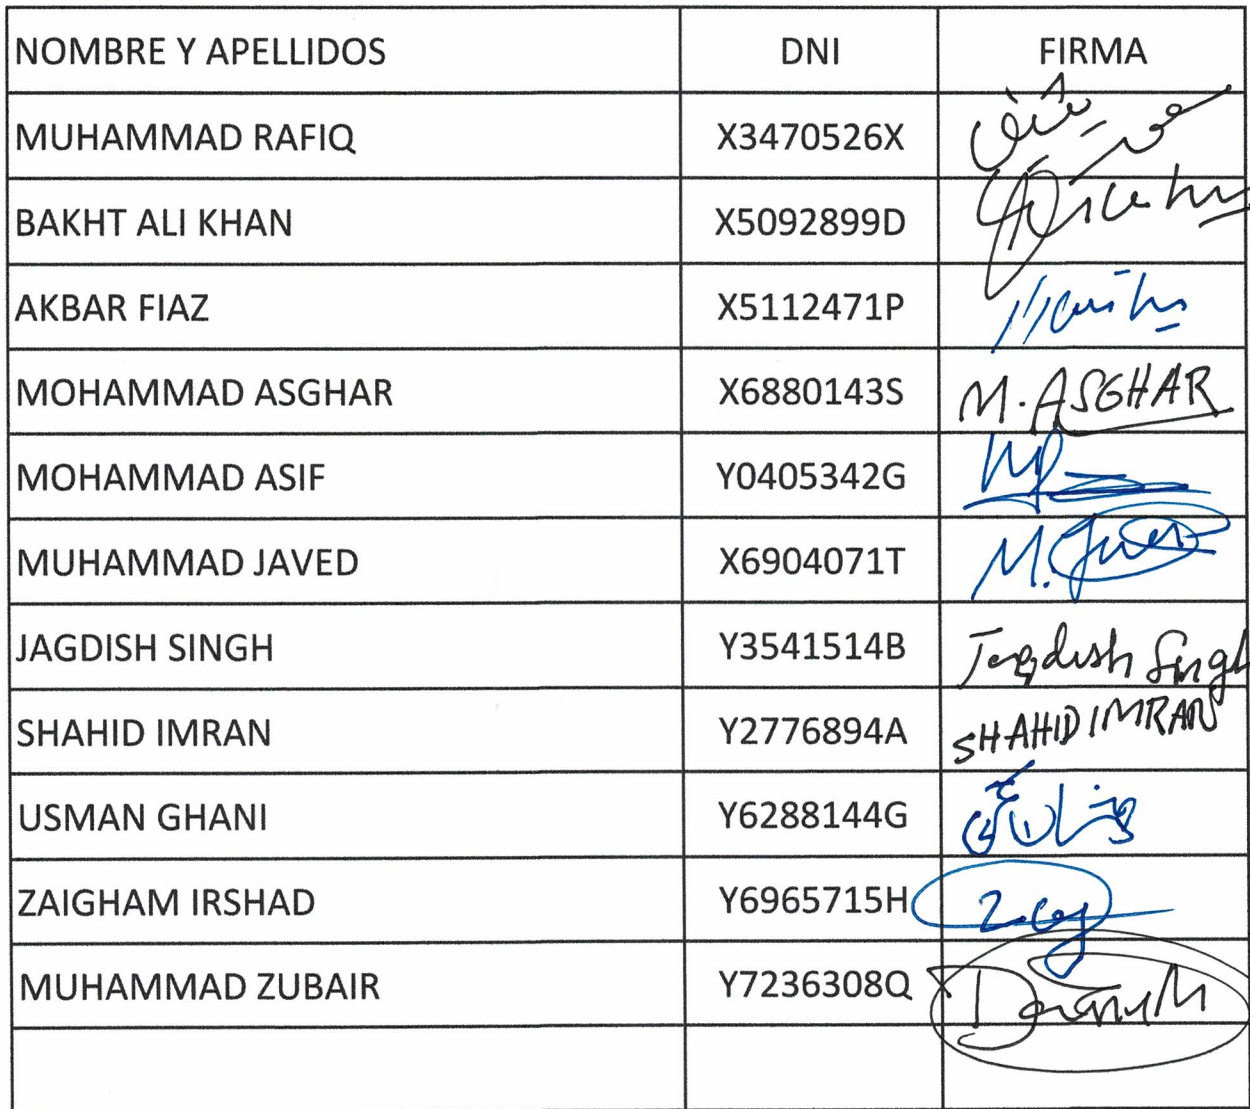 NOMBRE Y APELLIDOS DNI FIRMA
MUHAMMAD RAFIQ X3470526X
BAKHT ALI KHAN X5092899D
AKBAR FIAZ X5112471P
MOHAMMAD ASGHAR X6880143S M. ASGHAR
MOHAMMAD ASIF Y0405342G
MUHAMMAD JAVED X6904071T M.
JAGDISH SINGH Y3541514B Jagdish Singh
SHAHID IMRAN Y2776894A SHAHID IMRAN
USMAN GHANI Y6288144G عثمان غنی
ZAIGHAM IRSHAD Y6965715H
MUHAMMAD ZUBAIR Y7236308Q